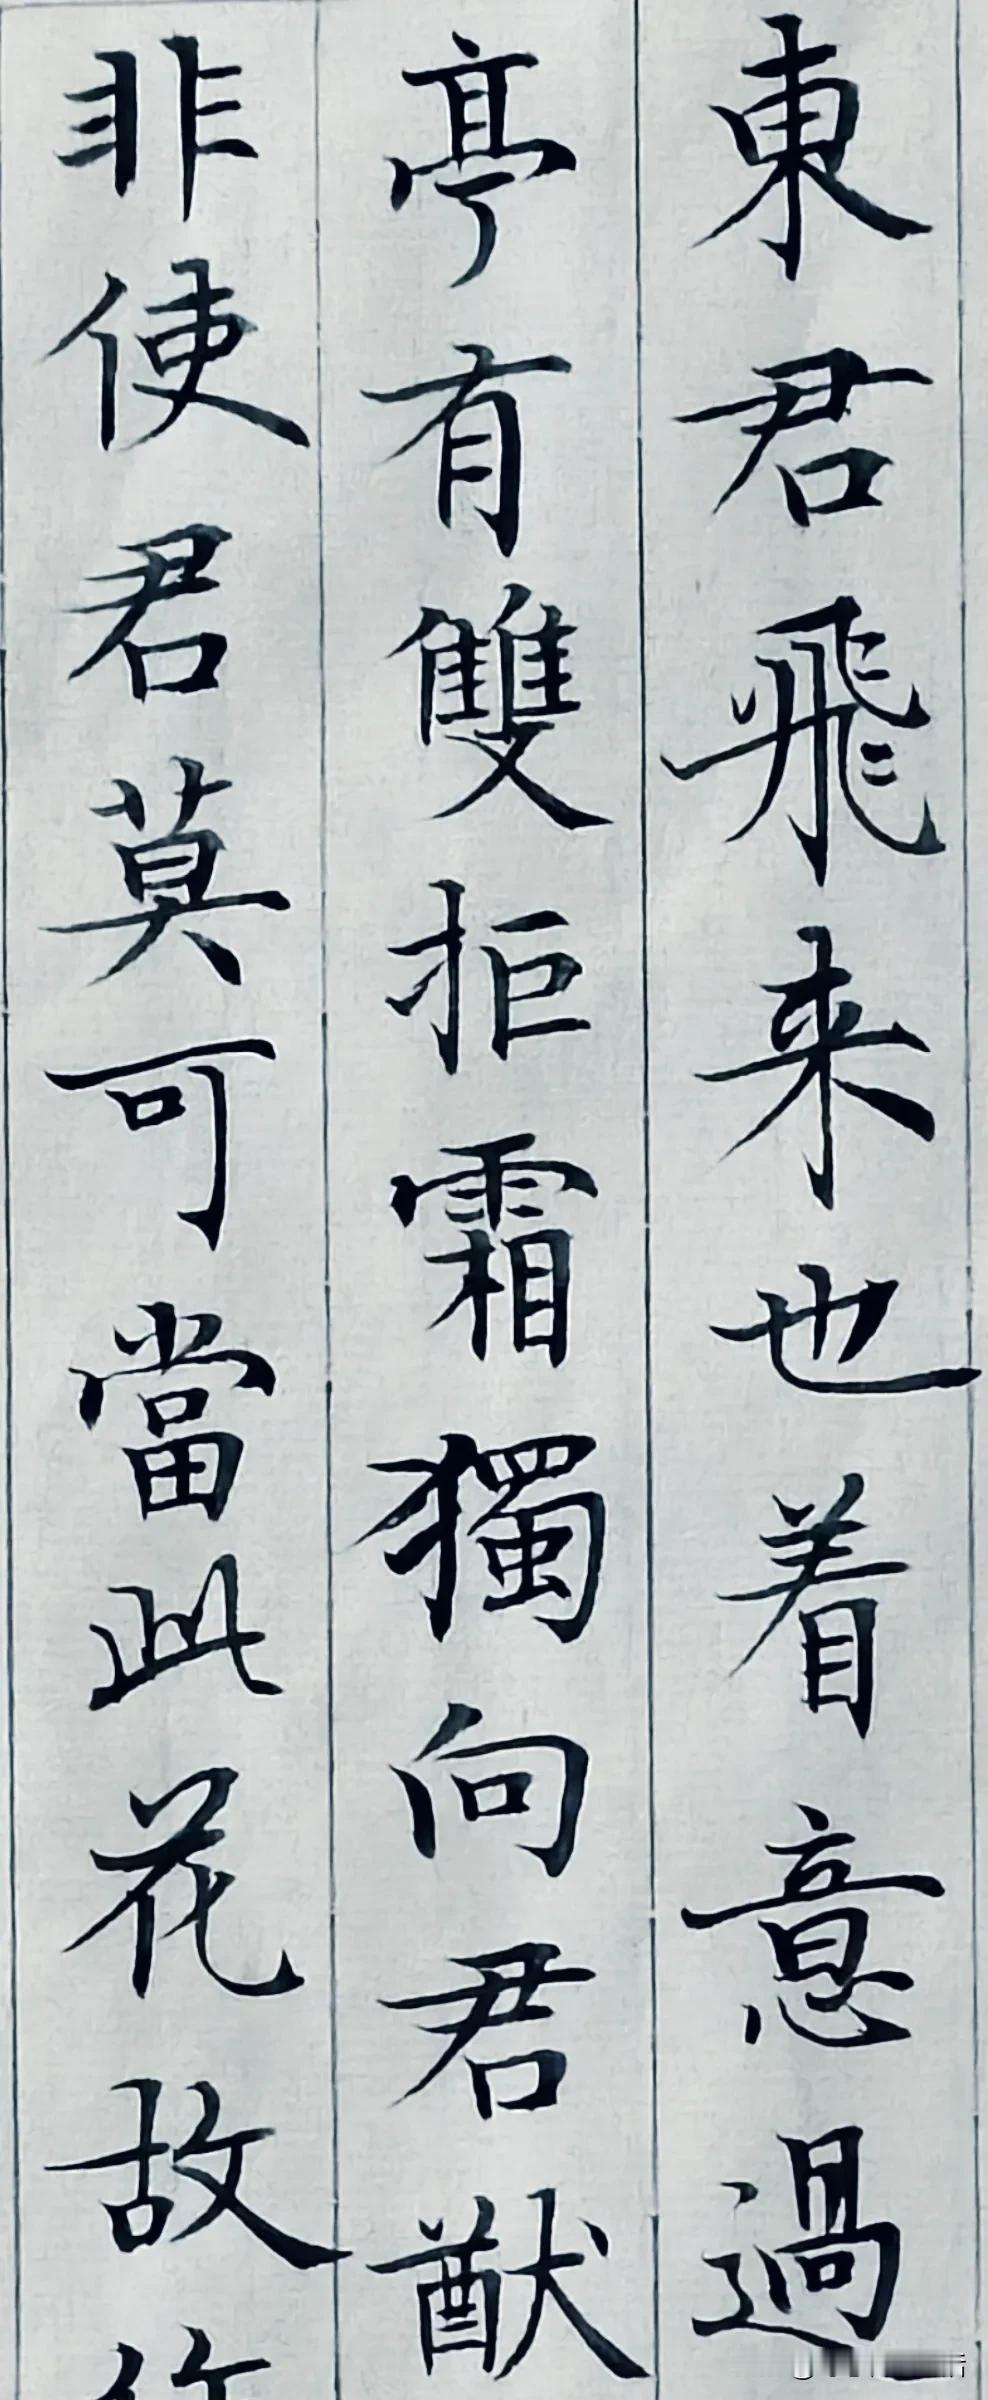 東君飛来也着意過
亭有雙拒霜獨向君猷
非使君莫可當此花故